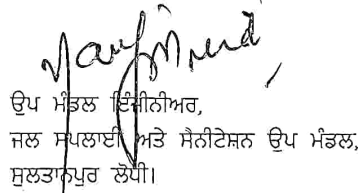 ਉਪ ਮੰਡਲ ਇੰਜੀਨੀਅਰ,
ਜਲ ਸਪਲਾਈ ਅਤੇ ਸੈਨੀਟੇਸ਼ਨ ਉਪ ਮੰਡਲ,
ਸੁਲਤਾਨਪੁਰ ਲੋਧੀ।